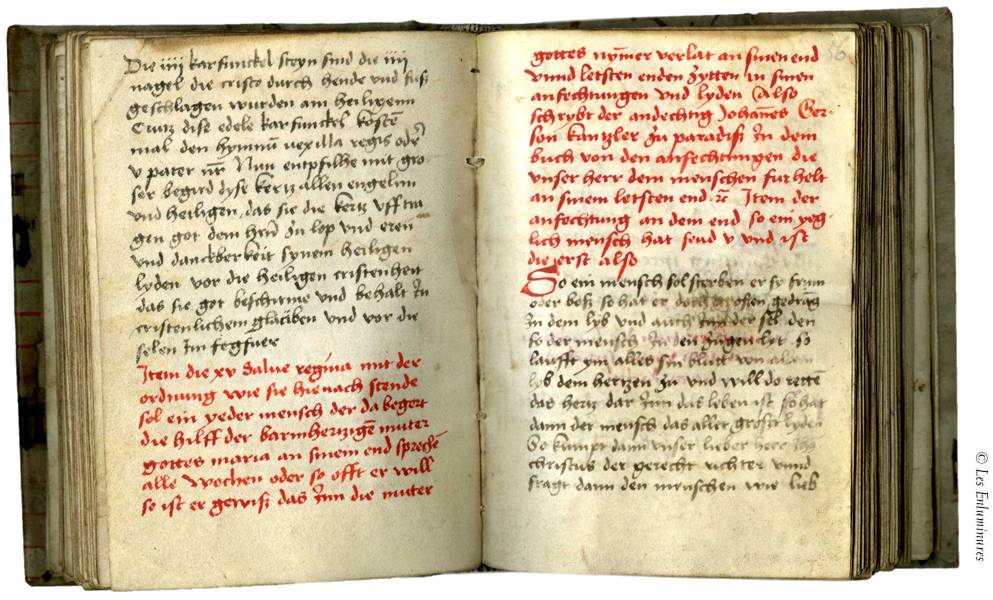 Die iiij karfunckel steyn sind die iiij
nagel die cristo durch hende vnd fuß
geschlagen wurden am heiligenn
Crutz dise edele karfunckel kostē
mal den hymnū vexilla regis oder
v pater nr̄ Nun entpfilhe mit gro
ser begird dyse kertz allen engelnn
vnd heiligen, das sie die kertz vff tra
gen got dem hrn̄ zu lop vnd eren
vnd danckberkeit synem heiligen
lyden vor die heiligen cristenheit
das sie got beschirme vnd behalt in
cristenlichem glauben vnd vor die
selen im fegfuer
Item die xv Salue regina mit der
ordnung wie sie hienach stende
sol ein yeder mensch der da begert
die hilff der barmhertzigē muter
gottes maria an sinem end sprechē
alle wochen oder so offt er will
so ist er gewiß das inn die muter
56
gottes nymer verlat an sinen end
vnnd letsten enden zytten in sinen
anfechtungen vnd lyden Also
schrybt der andechtig Johannes Ger-
son kantzler zu paradiß in dem
buch von den anfechtungen die
vnser herr dem menschen fur helt
an sinem letsten end ꝛc Item der
anfechtung an dem end so ein yeg-
lich mensch hat send v vnd ist
die erst also
So ein mensch sol sterben er sy frum
oder boß so hat er doch grossen gedrāg
in dem lyb vnd auch inn der sel den
so der mensch in den zugen lyt so
laufft ym alles sin blutt von allem
lyb dem hertzen zu vnd will do rettē
das hertz dar inn das leben ist so hat
dann der mensch das aller grost lyden
So kumpt dann vnser lieber herr
christus der gerecht richter vnnd
fragt dann den menschen wie lieb
© Les Enluminures